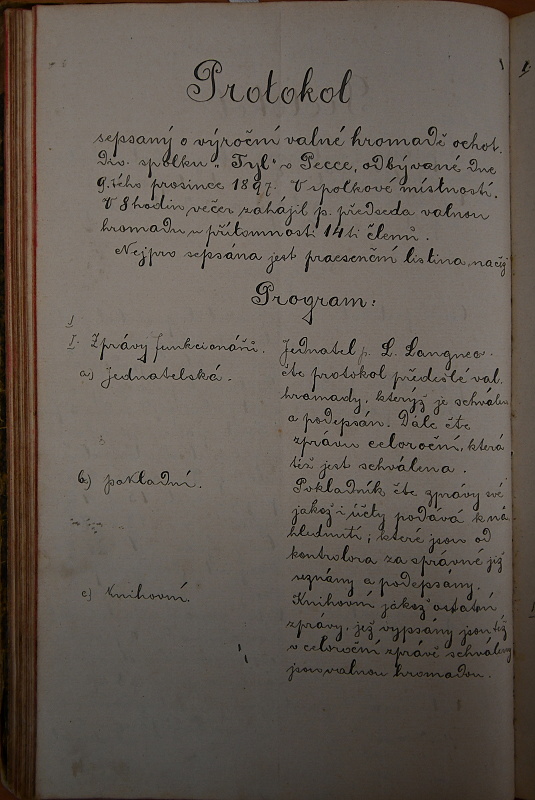 Protokol
sepsaný o výroční valné hromadě ochot.
div. spolku „Tyl" v Pecce, odbývané dne
9. tého prosince 1897. V spolkové místnosti.
V 8 hodin večer zahájil p. předseda valnou
hromadu u přítomnosti 14ti členů.
Nejprv sepsána jest praesenční listina, načež
Program:
I. Zprávy funkcionářů.
Jednatel p. L. Langner.
a) Jednatelská.
čte protokol předešlé val.
hromady, kterýž je schválen
a podepsán. Dále čte
zprávu celoroční, která
též jest schválena.
b) pokladní.
Pokladník čte zprávy své
jakož i účty podává k ná
hlednutí; které jsou od
kontrolora za správné již
seznány a podepsány.
c) Knihovní.
Knihovní jakož ostatní
zprávy, jež vypsány jsou též
v celoroční zprávě schváleny
jsou valnou hromadou.